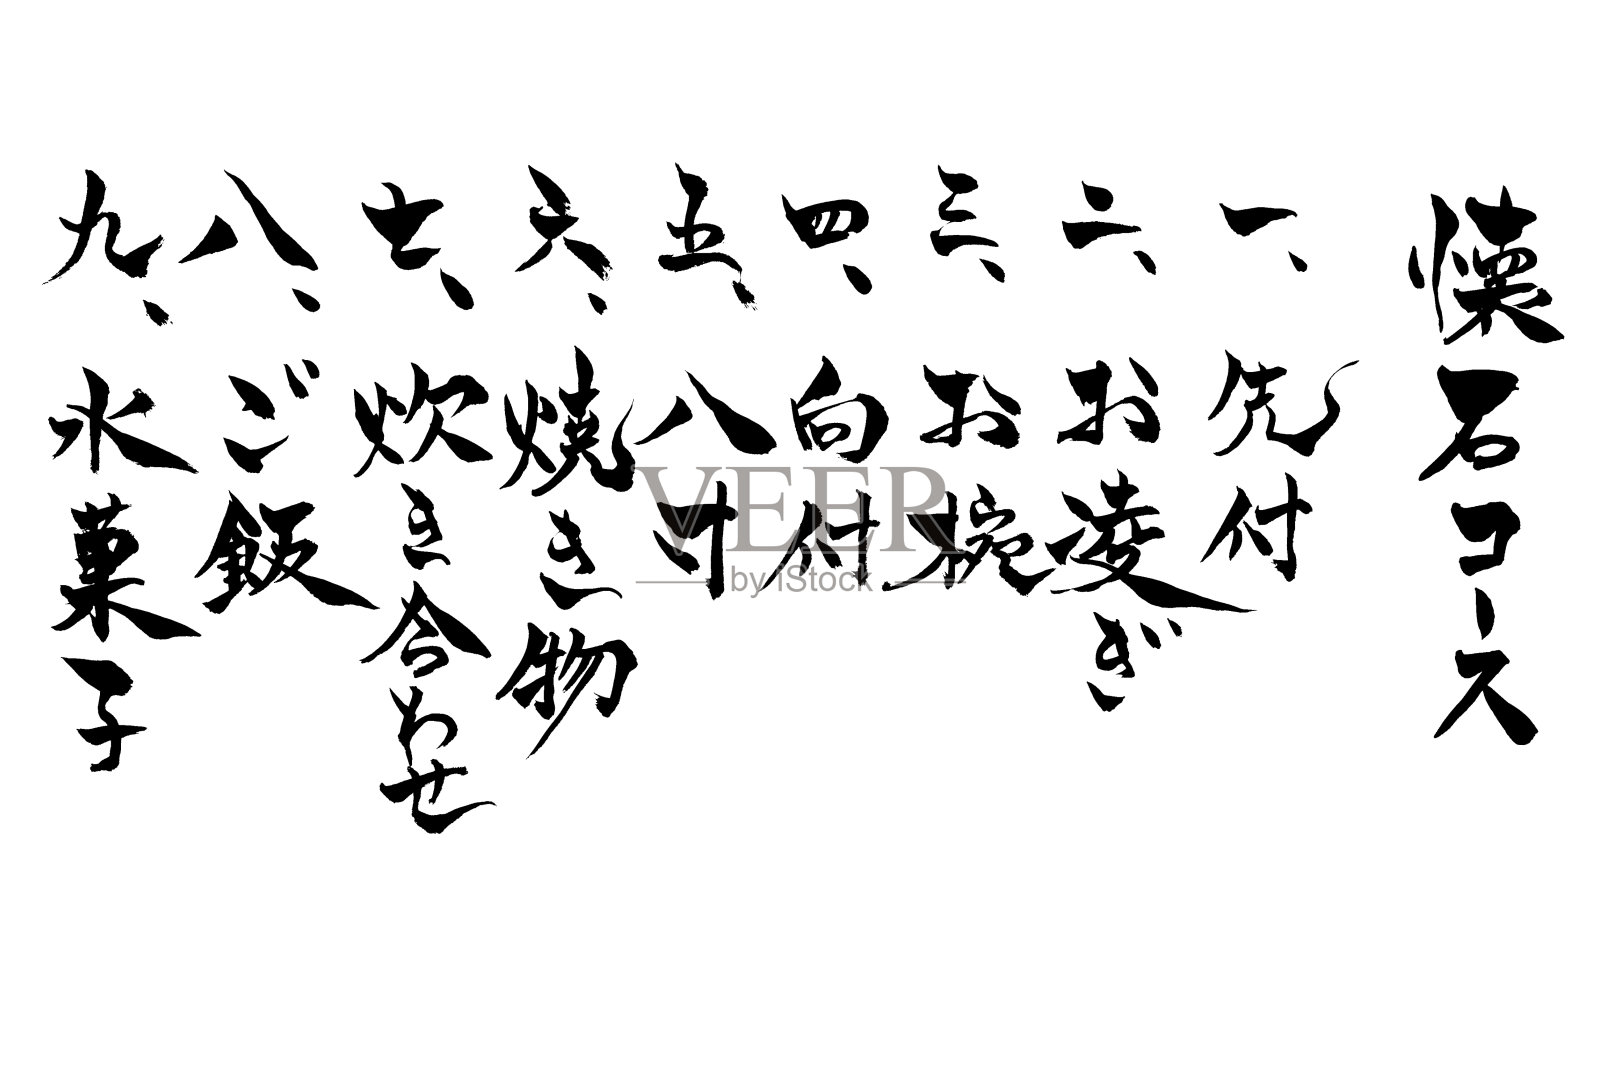 懐石コース
一、先付
二、お凌ぎ
三、お椀
四、向付
五、八寸
六、焼き物
七、炊き合わせ
八、ご飯
九、水菓子
VEER
by iStock